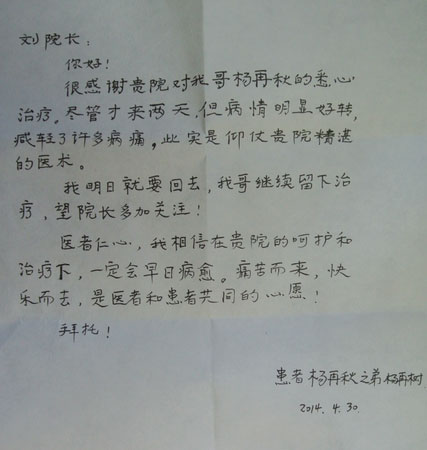 刘院长：
你好！
很感谢贵院对我哥杨再秋的悉心
治疗。尽管才来两天，但病情明显好转，
减轻了许多病痛。此实是仰仗贵院精湛
的医术。
我明日就要回去，我哥继续留下治
疗，望院长多加关注！
医者仁心，我相信在贵院的呵护和
治疗下，一定会早日病愈。痛苦而来，快
乐而去，是医者和患者共同的心愿！
拜托！
患者杨再秋之弟杨再树
2014.4.30.